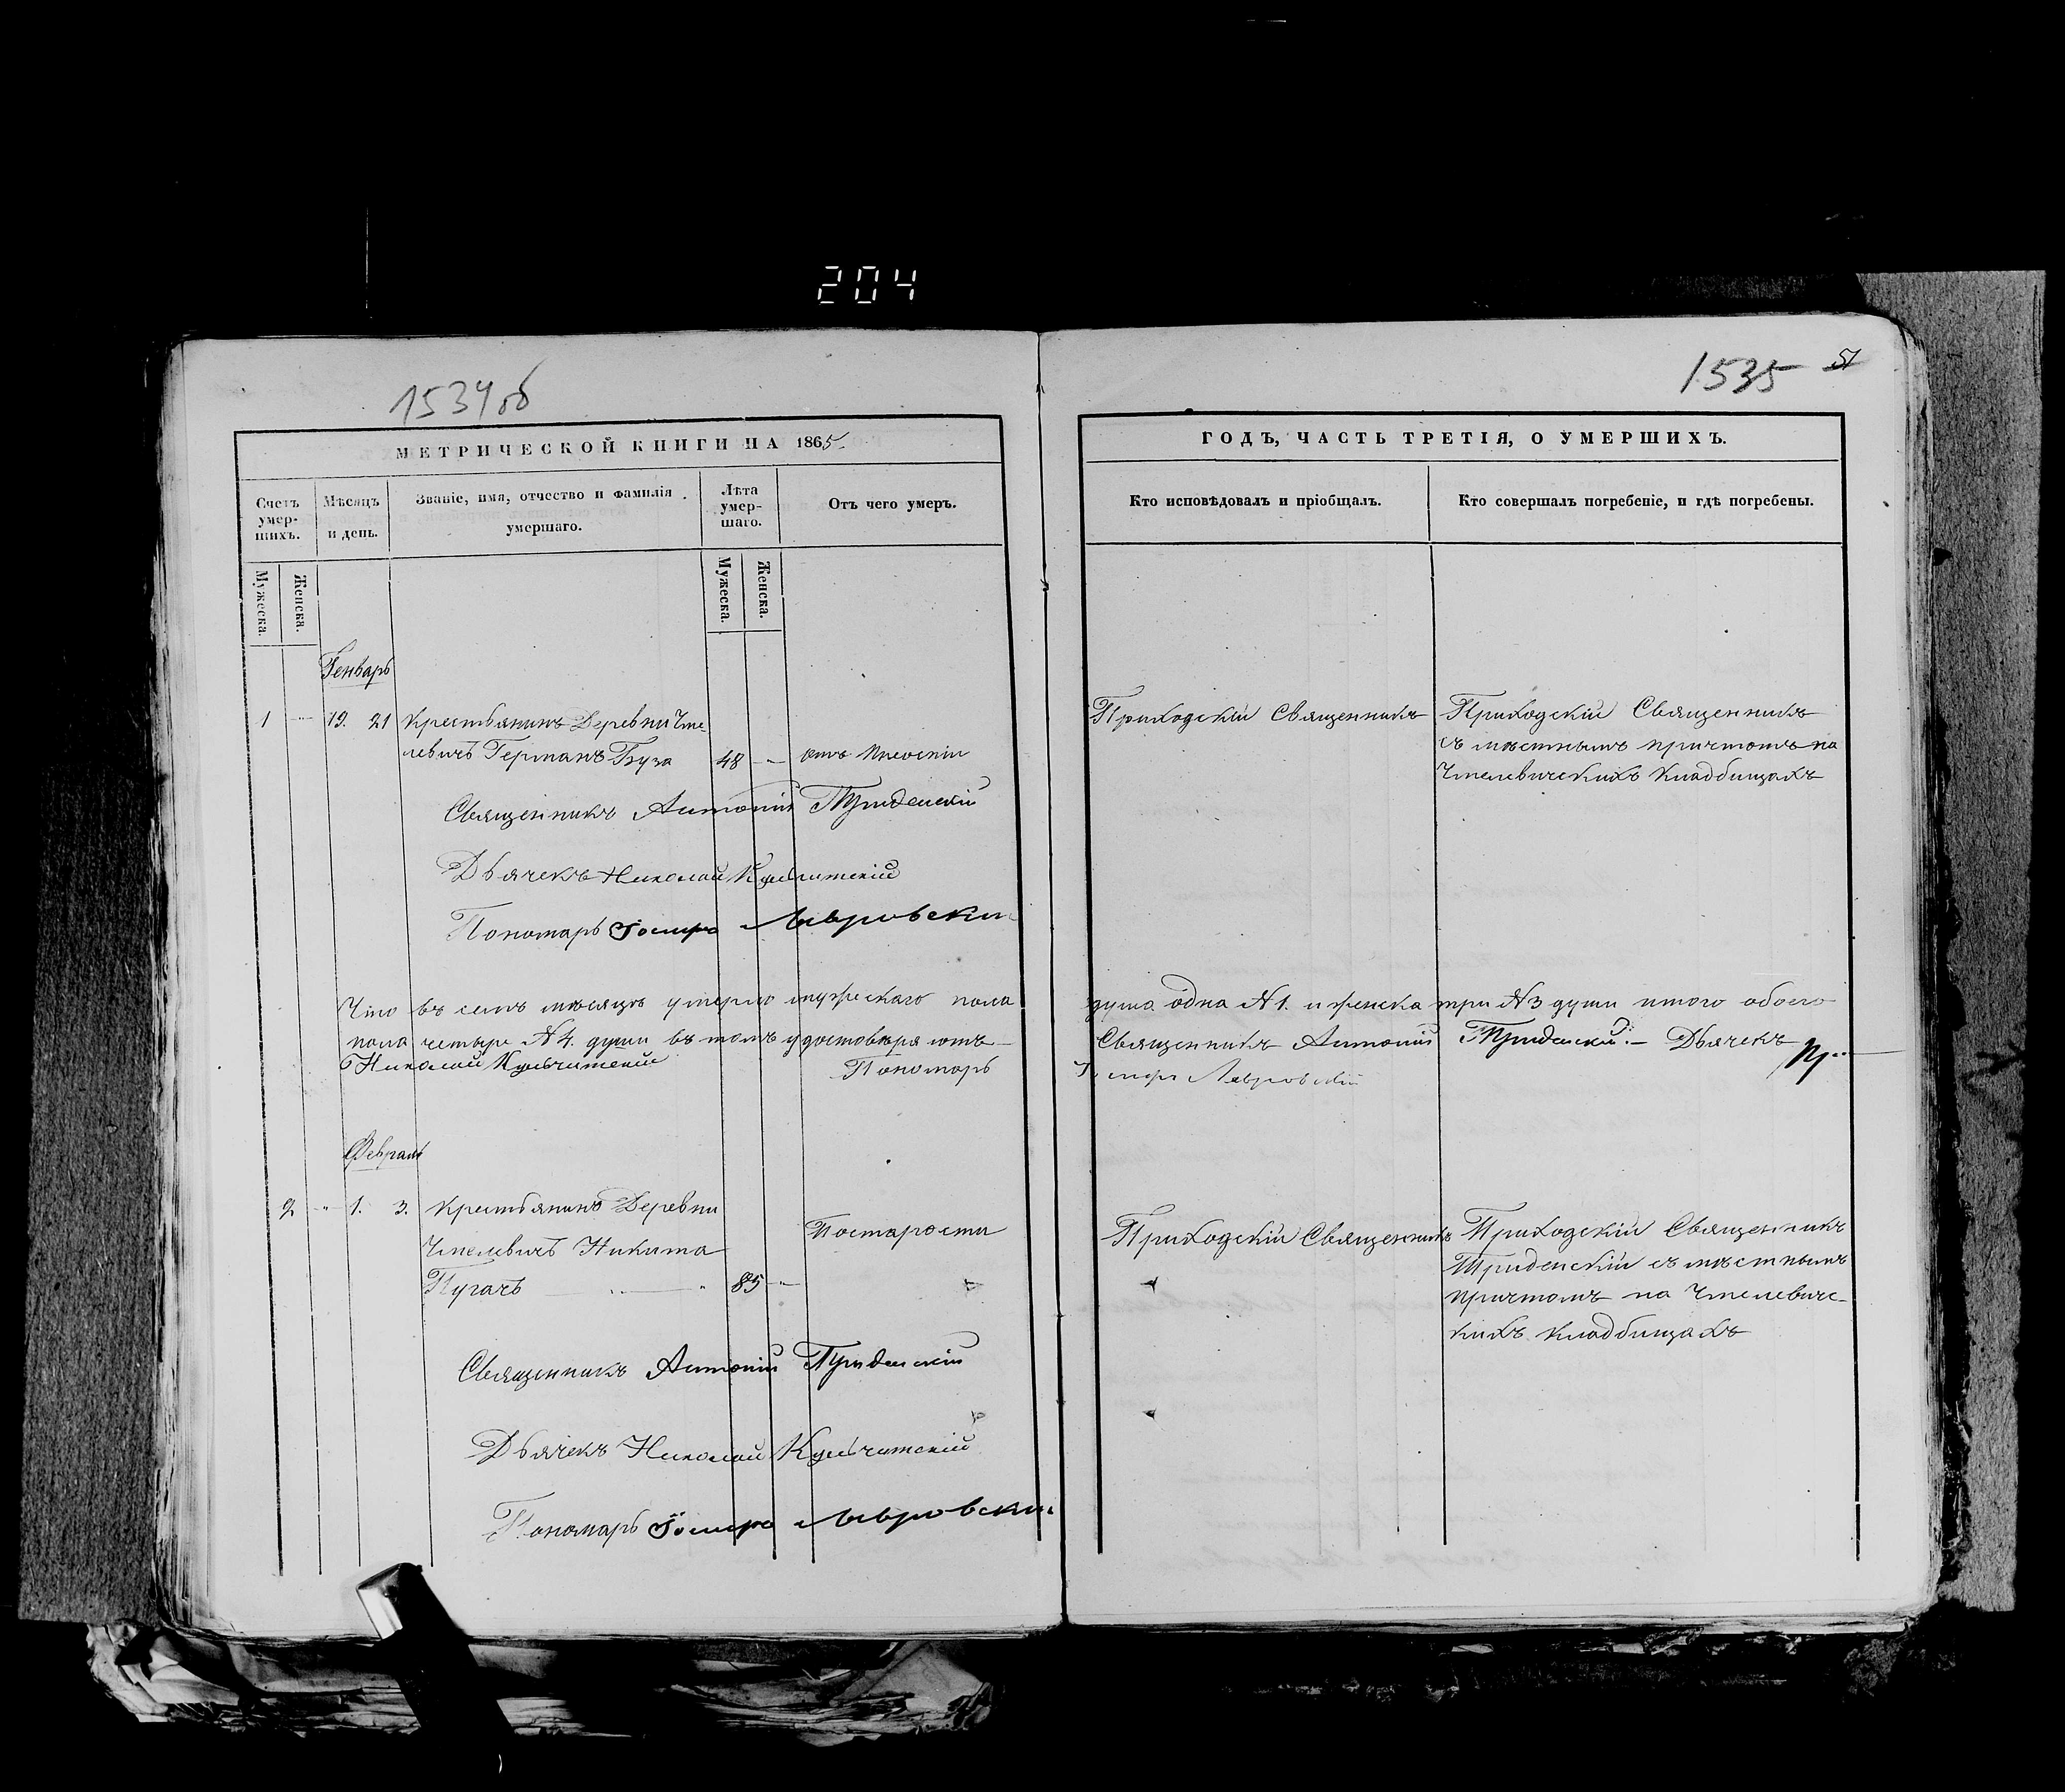 204
1534об
МЕТРИЧЕСКОЙ КНИГИ НА 1865
Счетъ умер-шихъ.
Мѣсяцъ и день.
Званіе, имя, отчество и фамилія умершаго.
Лѣта умер-шаго.
Отъ чего умеръ.
Мужеска.
Женска.
Мужеска.
Женска.
Генварь
1 19. 21 Крестьянинъ Деревни Чме-
левичъ Германъ Буза 48
Священникъ Антоній
Дьячекъ Николай Кульчитскій
Пономарь Лавровскій
Что въ семъ мѣсяцѣ умерло мужескаго пола
пола четыре №4. души въ томъ удостовѣряютъ
Николай Кульчитскій Пономарь
Февраль
2 1. 3. Крестьянинъ Деревни
Чмелевичъ Никита
Пугачъ 85
Постарости
Священникъ Антоній
Дьячекъ Николай Кульчитскій
Пономарь Лавровскій
1535 51
ГОДЪ, ЧАСТЬ ТРЕТІЯ, О УМЕРШИХЪ.
Кто исповѣдовалъ и пріобщалъ.
Кто совершалъ погребеніе, и гдѣ погребены.
Приходскій Священникъ
Приходскій Священникъ
съ мѣстнымъ причтомъ на
Чмелевическихъ кладбищахъ
душа одна №1. и женска три №3 души итого обоего
Священникъ Антоній Дьячекъ
Лавровскій
Приходскій Священникъ
Приходскій Священникъ
съ мѣстнымъ
причтомъ на Чмелевиче-
кихъ кладбищахъ